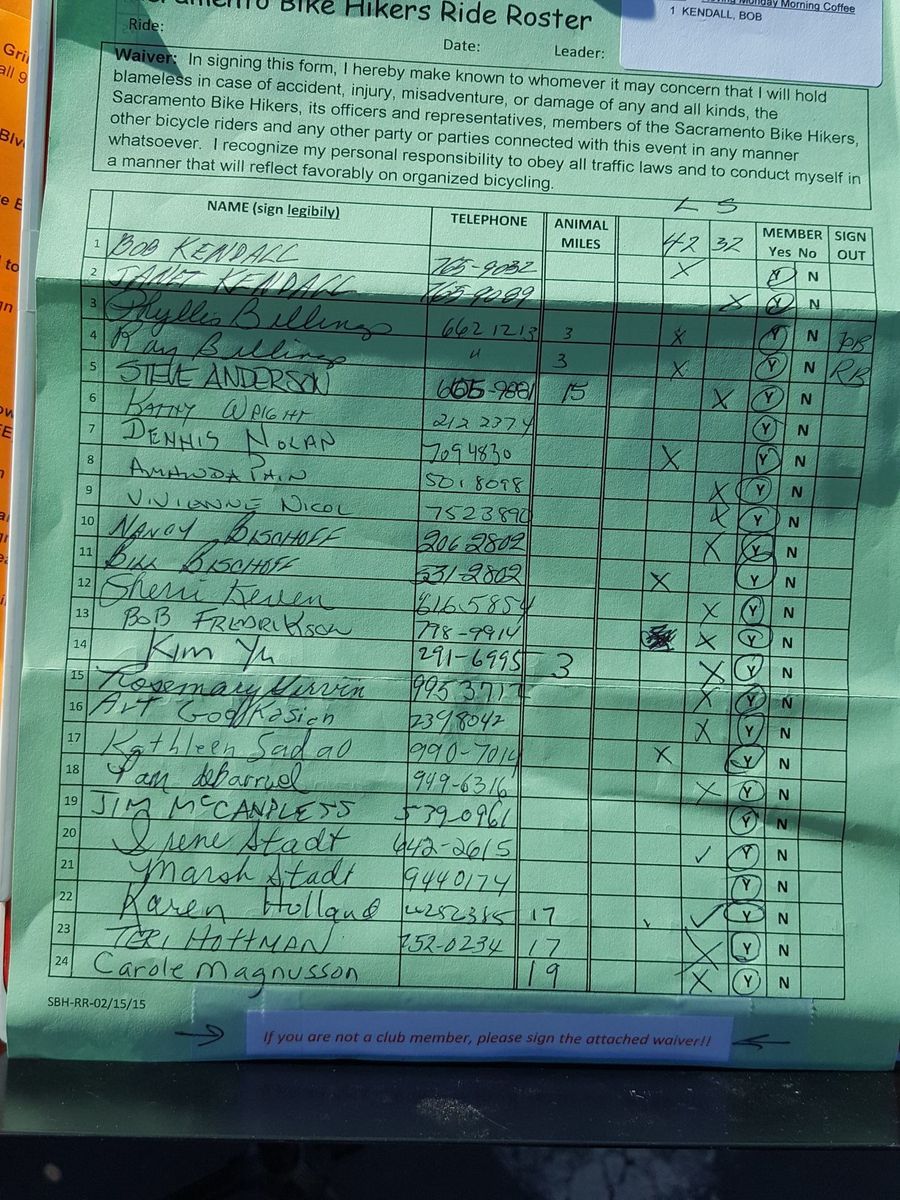 Bike Hikers Ride Roster
Monday Morning Coffee
1 KENDALL, BOB
Ride:
Date: Leader:
Waiver: In signing this form, I hereby make known to whomever it may concern that I will hold
blameless in case of accident, injury, misadventure, or damage of any and all kinds, the
Sacramento Bike Hikers, its officers and representatives, members of the Sacramento Bike Hikers,
other bicycle riders and any other party or parties connected with this event in any manner
whatsoever. I recognize my personal responsibility to obey all traffic laws and to conduct myself in
a manner that will reflect favorably on organized bicycling.
L S
NAME (sign legibily) TELEPHONE ANIMAL MILES 42 32 MEMBER Yes No SIGN OUT
1 BOB KENDALL 765-9032 X Y N
2 JANET KENDALL 765-9099 X Y N
3 Phyllis Billings 662 1213 3 X Y N PB
4 Ray Billings " 3 X Y N RB
5 STEVE ANDERSON 15 X Y N
6 KATHY WRIGHT 212 2374 Y N
7 DENNIS NOLAN 709 4830 X Y N
8 AMANDA PAIN 501 8098 X Y N
9 VIVIENNE NICOL 7523890 X Y N
10 NANCY BISCHOFF 206 2802 X Y N
11 BILL BISCHOFF 531-2802 X Y N
12 Sherri Keven 616.5854 X Y N
13 BOB FREDRIKSON 798-9914 X Y N
14 Kim Yu 291-6995 3 X Y N
15 Rosemary 995 3717 X Y N
16 Art 2398042 X Y N
17 Kathleen Sadao 990-7014 X Y N
18 Pam 949-6316 X Y N
19 JIM McCANDLESS 539-0961 Y N
20 Irene Stadt 642-2615 ✓ Y N
21 Marsh Stadt 9440174 Y N
22 Karen Holland 17 ✓ Y N
23 TERI HOFFMAN 752-0234 17 X Y N
24 Carole Magnusson 19 X Y N
SBH-RR-02/15/15
→ If you are not a club member, please sign the attached waiver!! ←